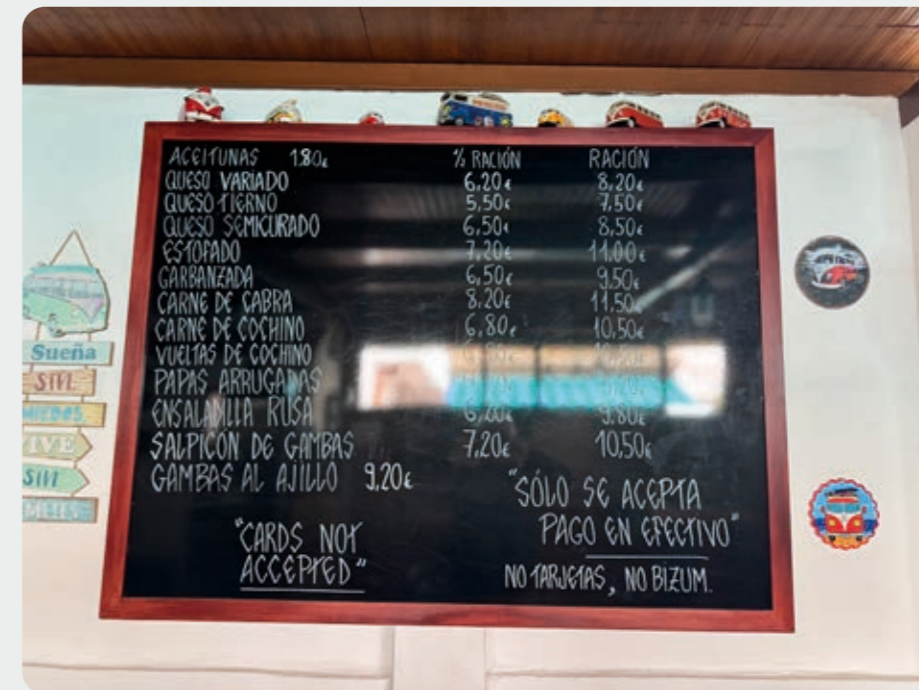 ACEITUNAS 1.80€ % RACIÓN RACIÓN
QUESO VARIADO 6.20€ 8,20€
QUESO TIERNO 5,50€ 7,50€
QUESO SEMICURADO 6,50€ 8,50€
ESTOFADO 7,20€ 11.00€
GARBANZADA 6,50€ 9.50€
CARNE DE CABRA 8,20€ 11,50€
CARNE DE COCHINO 6,80€ 10,50€
VUELTAS DE COCHINO
PAPAS ARRUGADAS
ENSALADILLA RUSA 9.80€
SALPICÓN DE GAMBAS 7,20€ 10,50€
GAMBAS AL AJILLO 9,20€
"CARDS NOT
ACCEPTED"
"SÓLO SE ACEPTA
PAGO EN EFECTIVO"
NO TARJETAS, NO BIZUM.
Sueña
SIN
VIVE
SIN